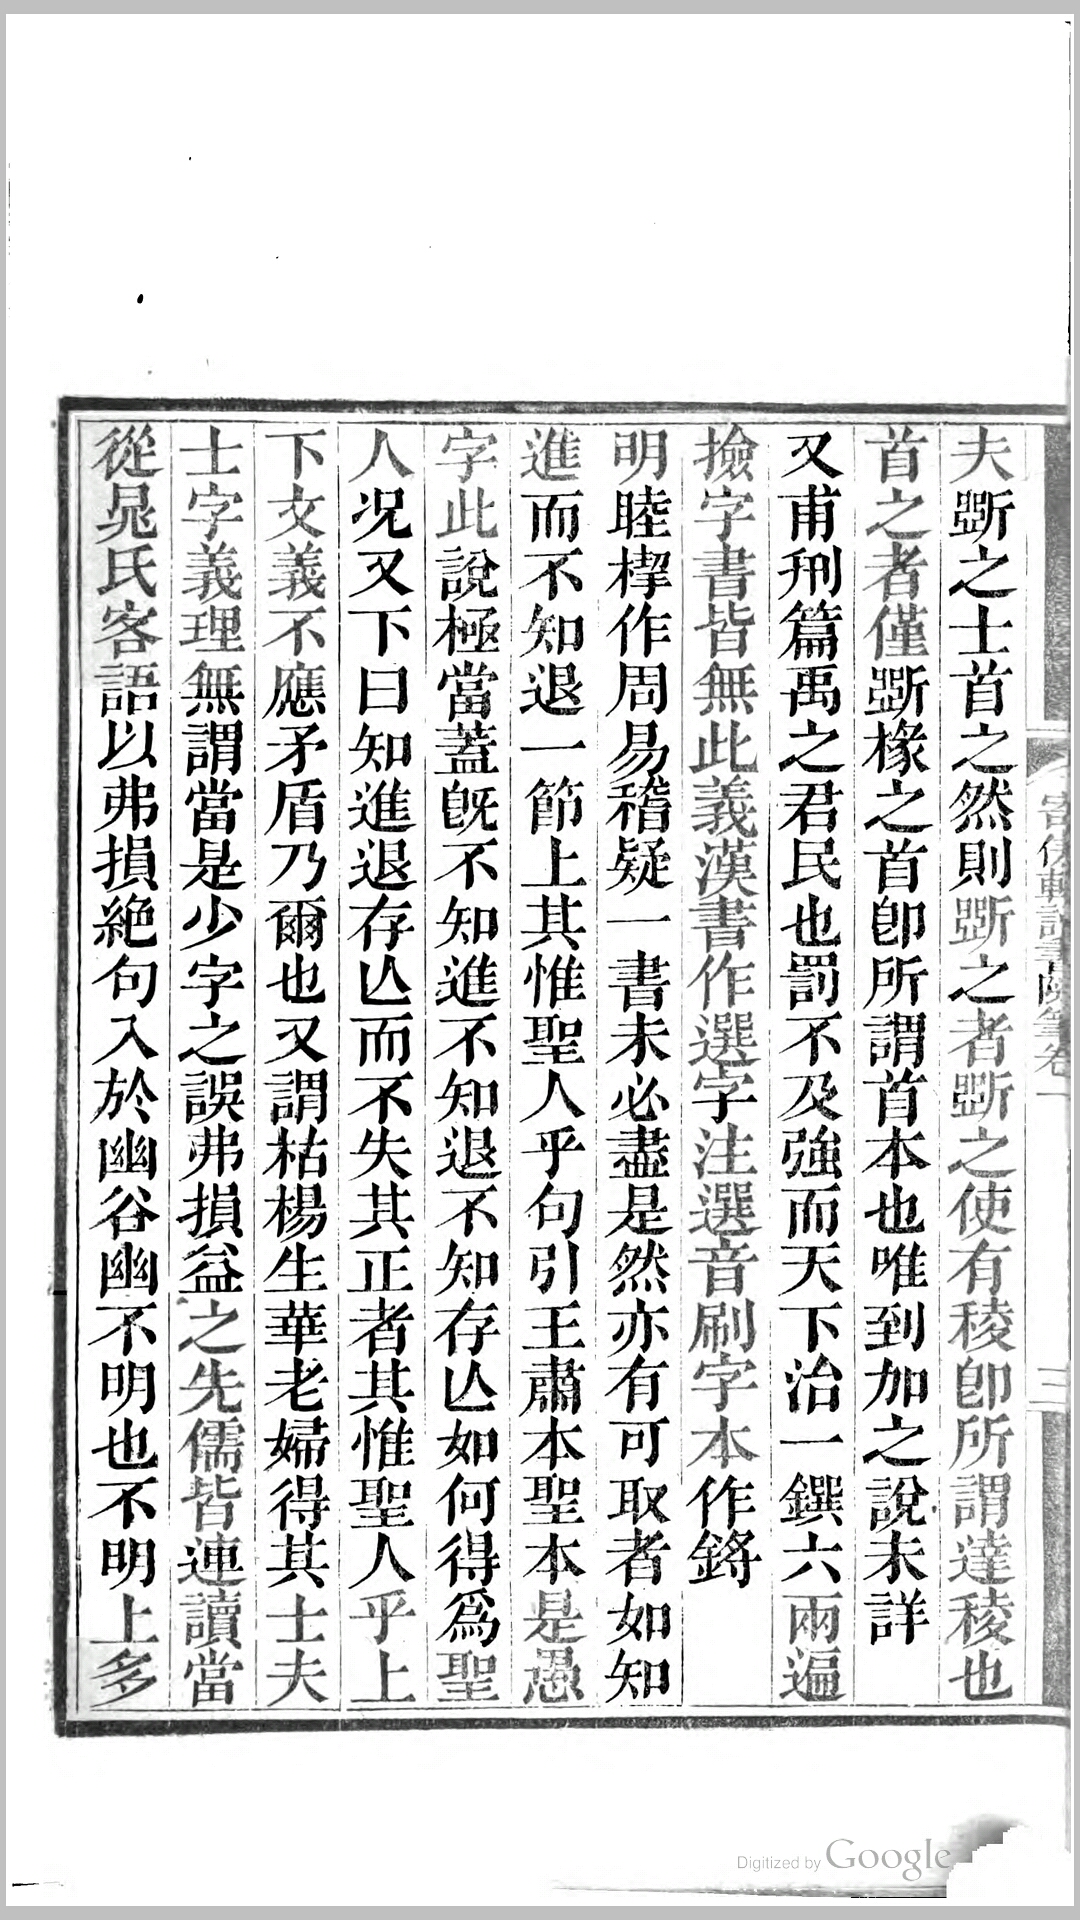 夫斲之士首之然則斲之者斲之使有稜卽所謂達稜也
首之者僅斲椽之首卽所謂首本也唯到加之說未詳
又甫刑篇禹之君民也罰不及強而天下治一鐉六兩遍
撿字書皆無此義漢書作選字注選音刷字本作鋝
明睦㮮作周易稽疑一書未必盡是然亦有可取者如知
進而不知退一節上其惟聖人乎句引王肅本聖本是愚
字此說極當蓋旣不知進不知退不知存亾如何得爲聖
人况又下曰知進退存亾而不失其正者其惟聖人乎上
下文義不應矛盾乃爾也又謂枯楊生華老婦得其士夫
士字義理無謂當是少字之誤弗損益之先儒皆連讀當
從晁氏客語以弗損絶句入於幽谷幽不明也不明上多
軒讀書隨筆卷一
三
Digitized by Google